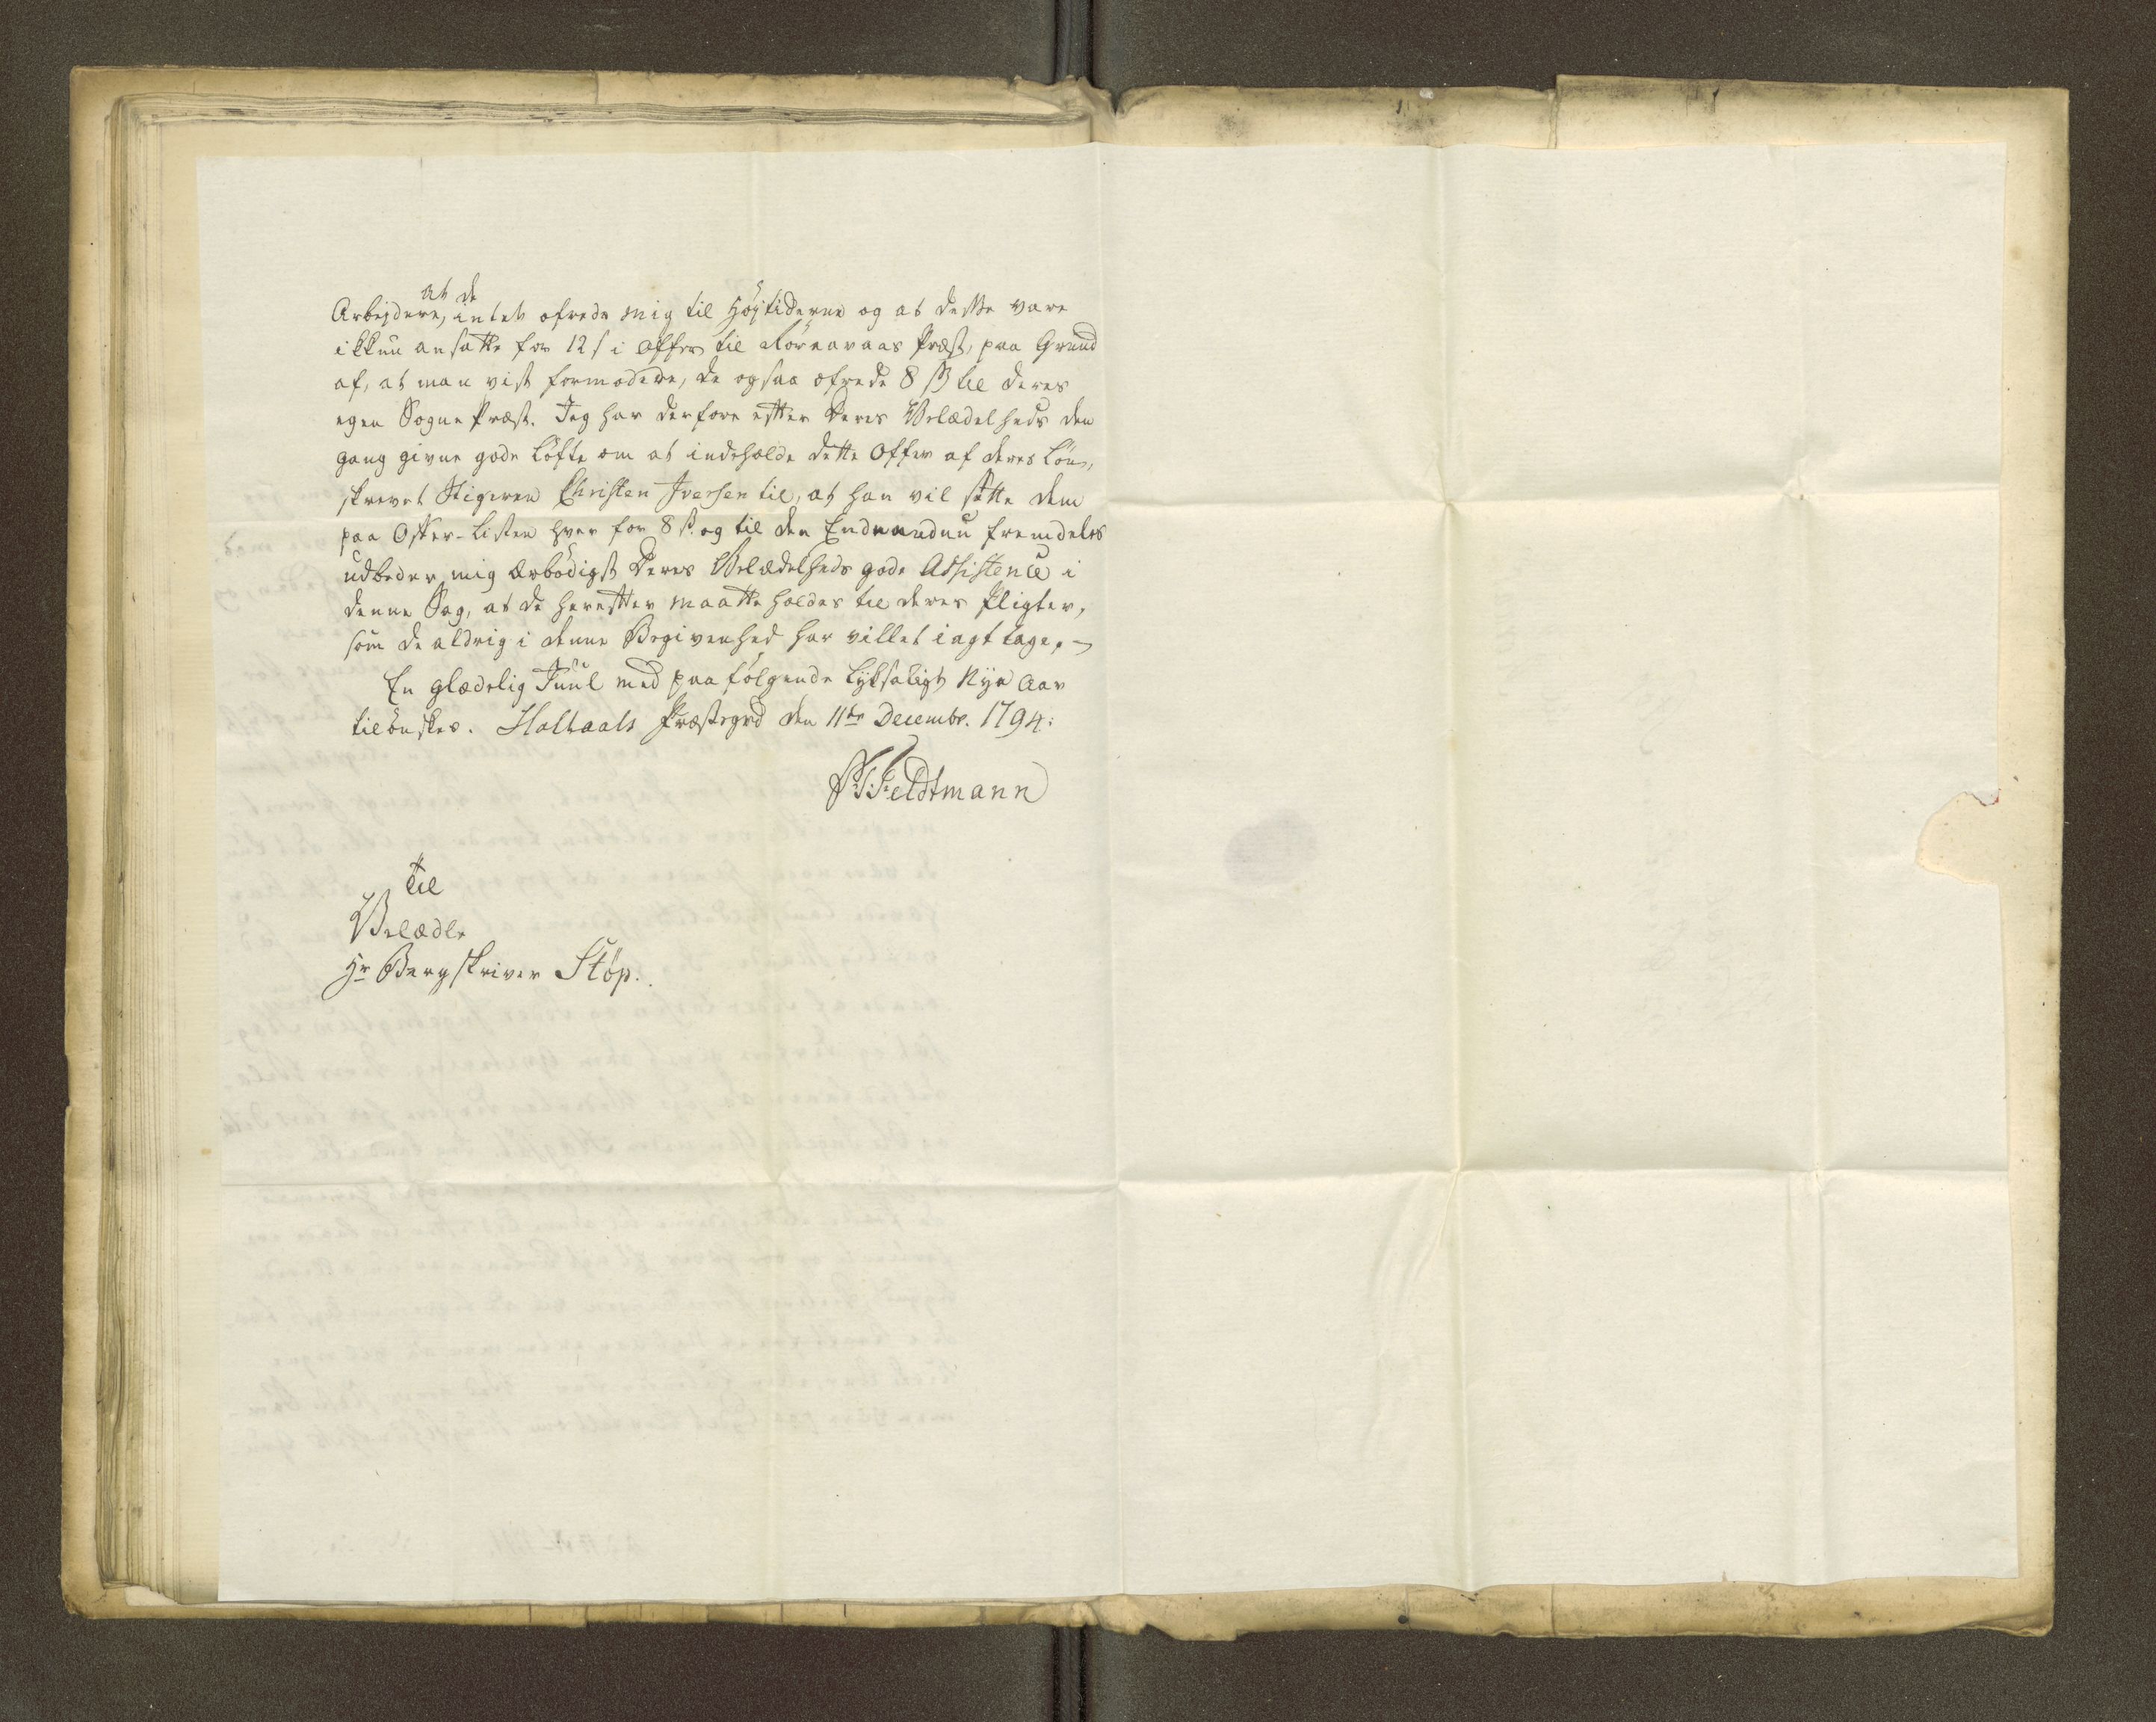 at de
Arbejdere, intet ofrede mig til Højtiderne og at disse vare
ikkun ansatte for 12 s i Offer til Røraas Præst, paa Grund
af, at man vist formodede, de ogsaa ofrede 8 ß til deres
egen Sogne Præst. Jeg har derfore efter Deres Velædelheds den
gang givne gode Løfte om at indeholde dette Offer af deres Løn,
skrevet Stigeren Christen Iversen til, at han vil sætte dem
paa Offer-Listen hver for 8 s. og til den Ende endnu fremdeles
udbeder mig ærbødigst Deres Velædelheds gode Assistence i
denne Sag, at de herefter maatte holdes til deres Pligter,
som de aldrig i denne Begivenhed har villet iagttage. –
En glædelig Juul med paafølgende lyksaligt Nye Aar
tilønskes. Holtaals Præstegrd den 11te Decembr. 1794.
Feldtmann
Til
Velædle
Hr Bergskriver Støp.